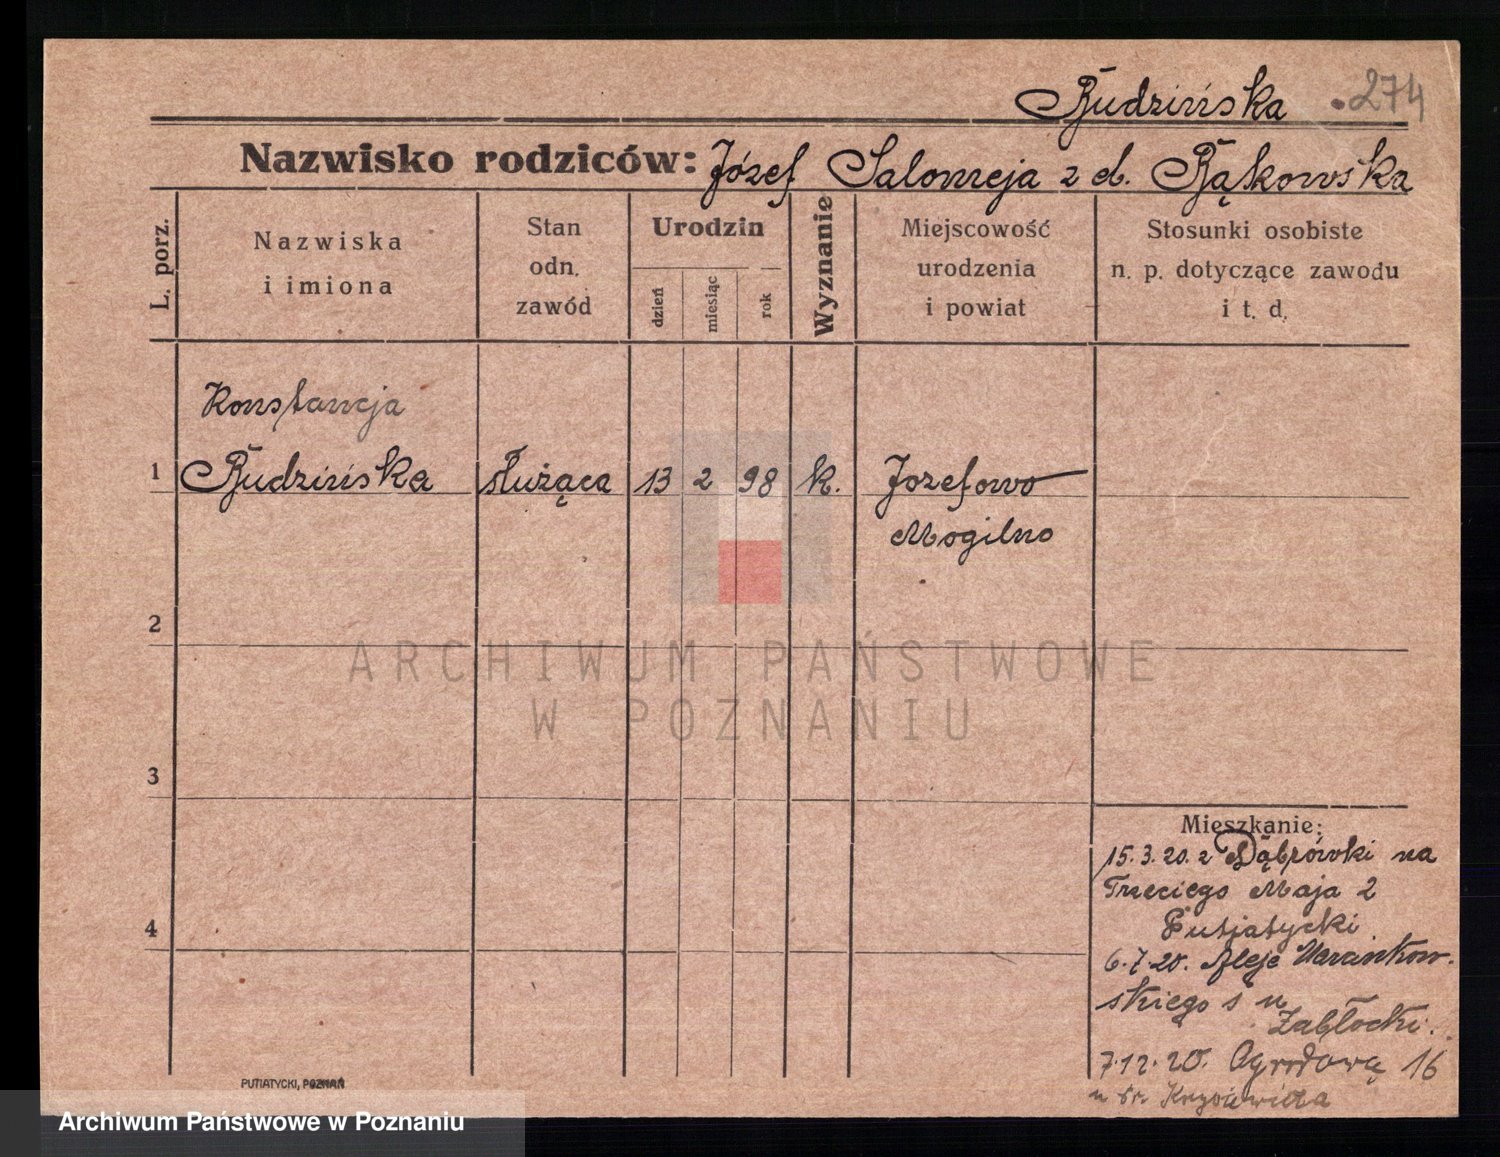 Budzińska .274
Nazwisko rodziców: Józef Salomeja z d. Bąkowska
L. porz.
Nazwiska
i imiona
Stan
odn.
zawód
Urodzin
dzień
miesiąc
rok
Wyznanie
Miejscowość
urodzenia
i powiat
Stosunki osobiste
n. p. dotyczące zawodu
i t. d.
Konstancja
1 Budzińska służąca 13 2 98 k. Jozefowo
Mogilno
2
ARCHIWUM PAŃSTWOWE
W POZNANIU
3
Mieszkanie:
15.3.20. z Dąbrówki na
Trzeciego Maja 2
Putjatycki
4
6.7.20. Aleje
skiego
Zabłocki.
7.12.20. Ogrodowa 16
PUTIATYCKI, POZNAŃ
Archiwum Państwowe w Poznaniu